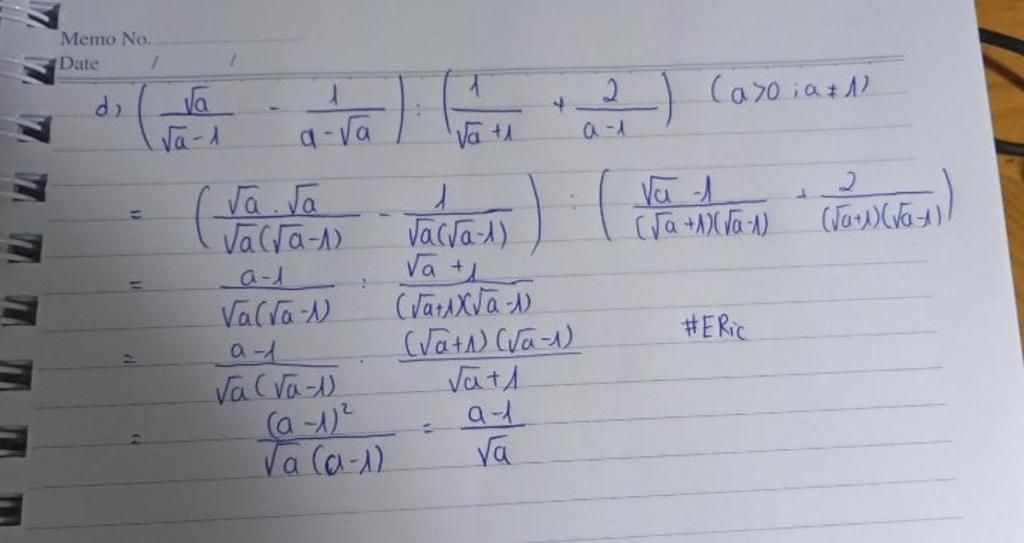 Memo No.
Date / /
d) (√a/(√a-1) - 1/(a-√a)) : (1/(√a+1) + 2/(a-1)) (a>0; a≠1)
= (√a.√a/(√a(√a-1)) - 1/(√a(√a-1))) : ((√a-1)/((√a+1)(√a-1)) + 2/((√a+1)(√a-1)))
= (a-1)/(√a(√a-1)) : (√a+1)/((√a+1)(√a-1))
= (a-1)/(√a(√a-1)) . ((√a+1)(√a-1))/(√a+1) #ERic
= (a-1)²/(√a(a-1)) = (a-1)/√a